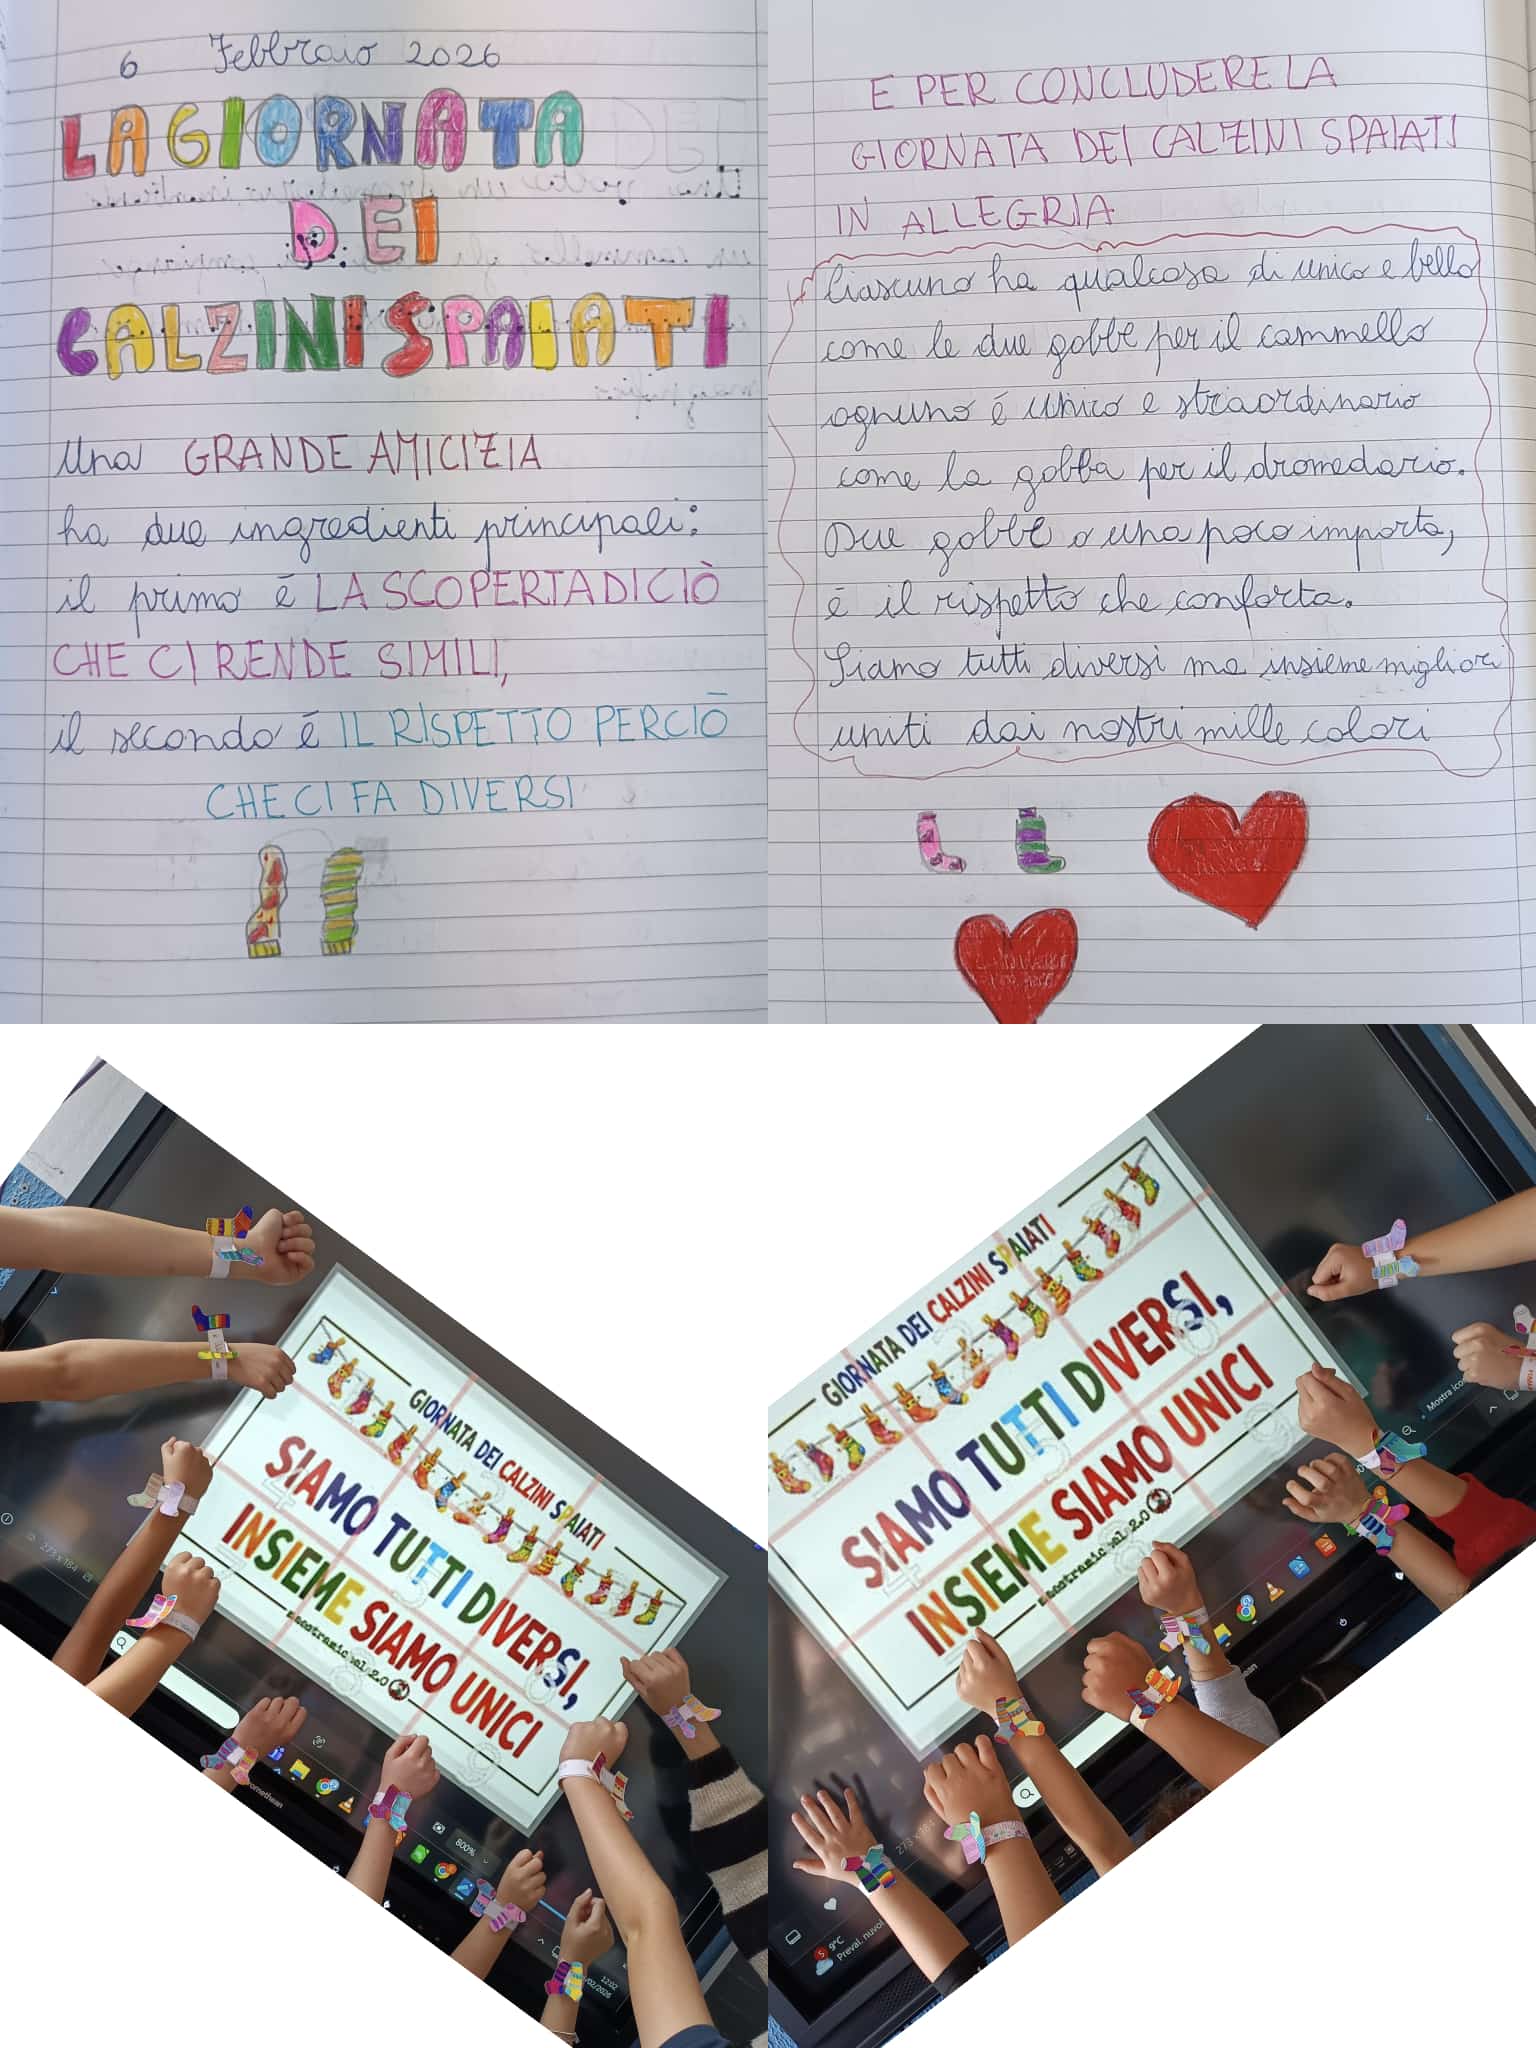 6 Febbraio 2026
LA GIORNATA
DEI
CALZINI SPAIATI
Una GRANDE AMICIZIA
ha due ingredienti principali:
il primo é LA SCOPERTA DI CIÒ
CHE CI RENDE SIMILI,
il secondo é IL RISPETTO PERCIÒ
CHE CI FA DIVERSI
E PER CONCLUDERE LA
GIORNATA DEI CALZINI SPAIATI
IN ALLEGRIA
Ciascuno ha qualcosa di unico e bello
come le due gobbe per il cammello
ognuno é unico e straordinario
come la gobba per il dromedario.
Due gobbe o una poco importa,
é il rispetto che conforta.
Siamo tutti diversi ma insieme migliori
uniti dai nostri mille colori
GIORNATA DEI CALZINI SPAIATI
SIAMO TUTTI DIVERSI,
INSIEME SIAMO UNICI
273 x 184
800%
12:02
GIORNATA DEI CALZINI SPAIATI
SIAMO TUTTI DIVERSI,
INSIEME SIAMO UNICI
Mostra ico
273 x 184
9°C
Preval. nuvol